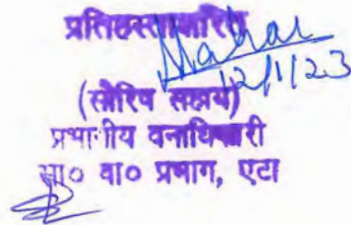 प्रतिहस्ताक्षरित
12/1/23
(सौरिष सहाय)
प्रभागीय वनाधिकारी
सा० वा० प्रभाग, एटा